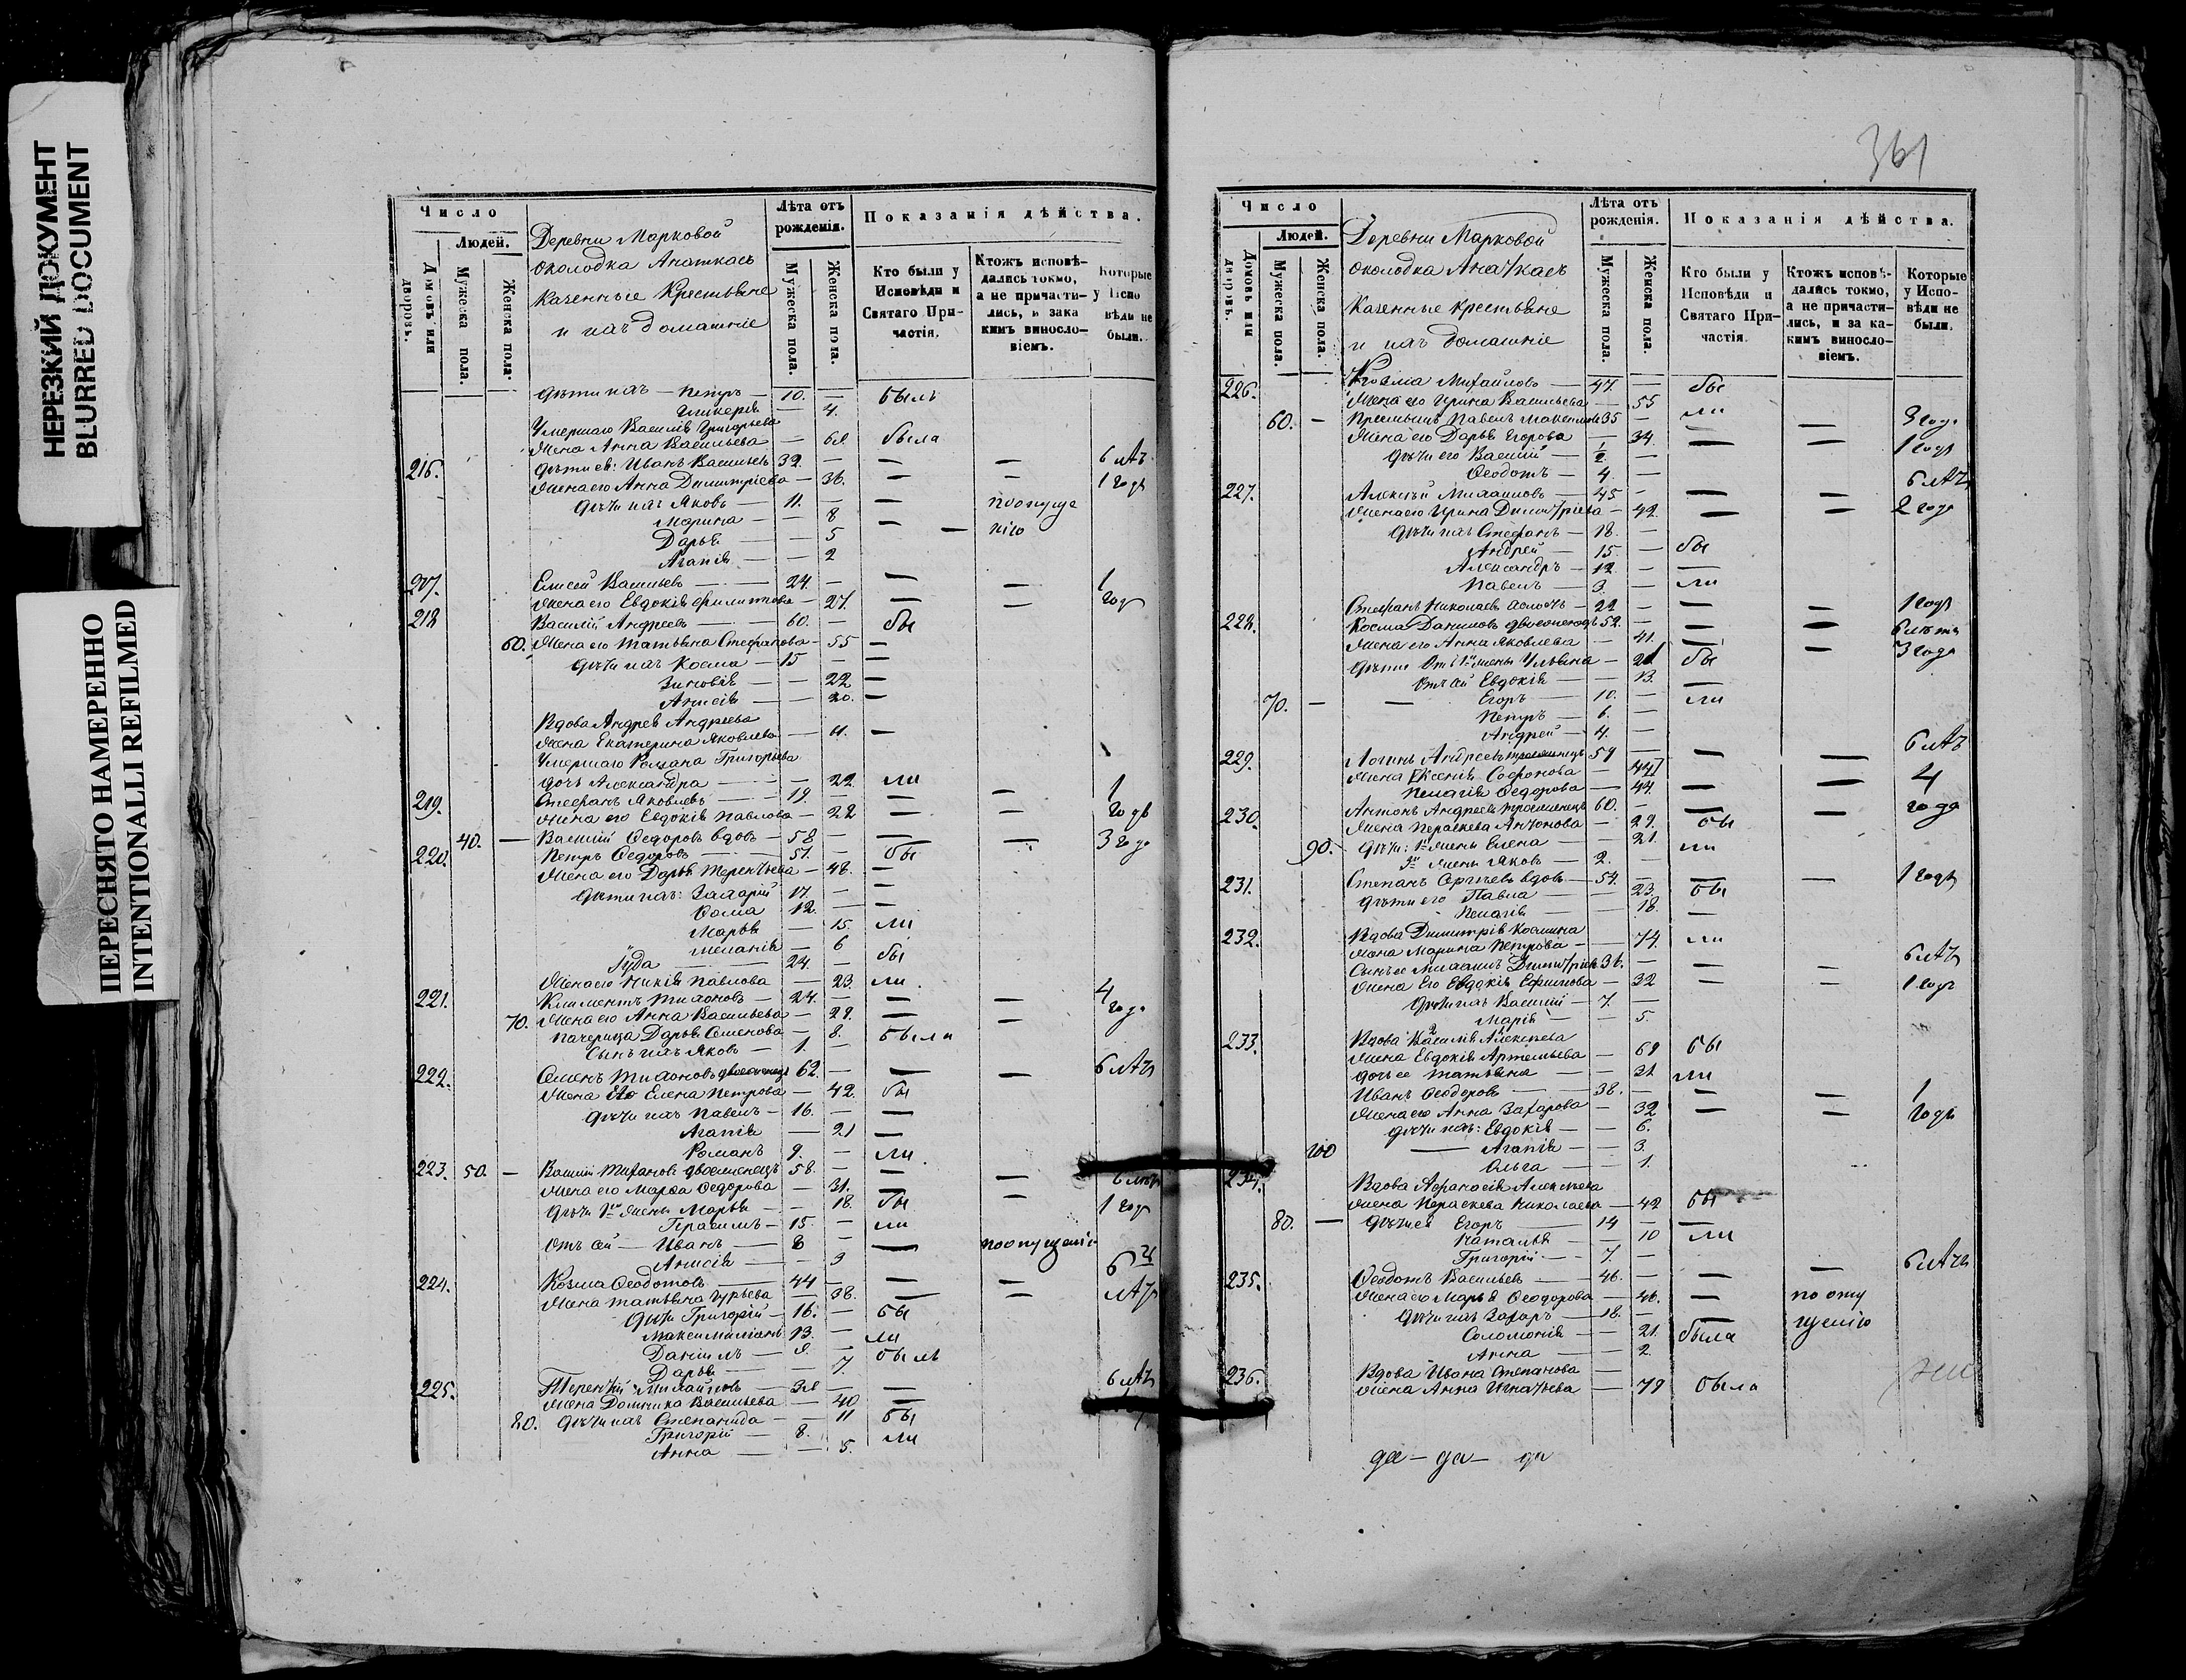 НЕРЕЗКИЙ ДОКУМЕНТ
BLURRED DOCUMENT
ПЕРЕСНЯТО НАМЕРЕННО
INTENTIONALLI REFILMED
Число
Людей.
Домовъ или дворовъ.
Мужеска пола.
Женска пола.
Деревни Марковой
околодка Анаткасъ
казенные крестьяне
и ихъ домашніе
Лѣта отъ рожденія.
Мужеска пола.
Женска пола.
Показанія дѣйства.
Кто были у Исповѣди и Святаго Причастія.
Ктожъ исповѣ-
дались токмо,
а не причасти-
лись, и зака
кимъ виносло-
віемъ.
Которые
у Испо
вѣди не
были.
дѣти ихъ — Петръ — 10. — былъ
Гликерія — 4.
Умершаго Василія Григорьева
жена Анна Васильева — была
216. дѣти ея: Иванъ Васильевъ 32. — — — 6 лѣтъ
жена его Анна Димитріева — 36. — 1 годъ
дѣти ихъ Яковъ — 11. — — по опуще
Марина — — 8
Дарья — — 5 — нію
Агапія — — 2
217. Елисей Васильевъ — 24. — — — 1
жена его Евдокія Филиппова — 27. — — годъ
218 Василій Андреевъ — 60. — бы
60. жена его Татьяна Стефанова — 55 —
дѣти ихъ Косма — 15 — —
Зиновія — — 22 —
Анисія — — 20. —
Вдова Андрея Андреева
жена Екатерина Яковлева —
Умершаго Романа Григорьева
дочь Александра — — 22. ли
219. Стефанъ Яковлевъ — 19. — — — 1
жена его Евдокія Павлова — 22 — годъ
40. — Василій Ѳедоровъ вдовъ — 58 — — — 3 года
220. Петръ Ѳедоровъ — 51. — бы
жена его Дарья Терентьева — 48. —
дѣти ихъ: Захарій 17. — —
Ѳома 12. — —
Марья — 15. ли
Меланія — 6
Іуда — 24. — бы
жена его Никія Павлова — 23. ли
221. Климентъ Тихоновъ — 24. — — — 4
70. жена его Анна Васильева — 22. — — года
падчерица Дарья Семенова — 8. были
Сынъ ихъ Яковъ — 1. —
222. Семенъ Тихоновъ двоеженецъ 62. — — — 6 лѣтъ
жена его Елена Петрова — 42. бы
дѣти ихъ Павелъ — 16. — —
Агапія — 21 —
Романъ 9. — ли.
223. 50. — Василій Тихановъ двоеженецъ 58. — — — 6 лѣтъ
жена его Марѳа Ѳедорова — 31. — —
дѣти 1й жены Марья — — 18. бы 1 годъ
Герасимъ — 15. — ли
отъ сей — Иванъ — 8 — — по опущенію
Анисія — — 3
224. Козма Ѳеодотовъ — 44 — — — 6
жена Татьяна Гурьева — 38. — — лѣтъ
дѣти Григорій — 16. — бы
Максимиліанъ 13. — ли
Даніилъ — — былъ
Дарья — — 7.
225. Терентій Михайловъ — — — 6 лѣтъ
жена Домника Васильева — 40 —
80. дѣти ихъ Степанида — — 11 бы
Григорій — 8. ли
Анна — — 5.
361
Число
Людей.
Домовъ или дворовъ.
Мужеска пола.
Женска пола.
Деревни Марковой
околодка Анаткасъ
казенные крестьяне
и ихъ домашніе
Лѣта отъ рожденія.
Мужеска пола.
Женска пола.
Показанія дѣйства.
Кто были у Исповѣди и Святаго При-
частія.
Ктожъ исповѣ-
дались токмо,
а не причасти-
лись, и за ка-
кимъ виносло-
віемъ.
Которые
у Испо-
вѣди не
были.
226. Косма Михайловъ — 47. — бы
жена его Ирина Васильева — 55
60. — Павелъ Максимовъ 35 — ли — 3 года
жена его Дарья Егорова — 34. — — 1 годъ
дѣти его Василій — —
Ѳеодотъ — 4. —
227. Алексѣй Михаиловъ — 45 — — — 6 лѣтъ
жена его Ирина Димитріева — 42. — — 2 года
дѣти ихъ Стефанъ — 18. —
Андрей — 15. — бы
Александръ — 12. — —
Павелъ — 3. — ли
Стефанъ Николаевъ — 22 — — — 1 годъ
228. Косма Даниловъ двоеженецъ 52. — — — 6 лѣтъ
жена его Анна Яковлева — 41. — — 3 года
дѣти отъ 1й жены Ульяна — 21 бы
отъ сей Евдокія — — 13.
70. — — Егоръ — 10. — ли
Петръ — 6. —
Андрей — 4. —
229. Логинъ Андреевъ 54 — — — 6 лѣтъ
жена Ксенія Софронова —
Пелагія Ѳедорова — 44. — — 4
230. Антонъ Андреевъ троеженецъ 60. — — — года
жена Пераскева Антонова — 29. бы
90. дѣти: 1й жены Елена — — 21. ли
жены Яковъ — 2. —
231. Степанъ Сергѣевъ вдовъ — 54. — — — 1 годъ
дѣти его Павла — — 23. бы
Пелагія — — 18. —
232. Вдова Димитрія Космина
жена Марина Петрова — — 74. ли
Сынъ ея Михаилъ Димитріевъ 36. — — — 6 лѣтъ
жена его Евдокія Ефимова — 32 — — 1 годъ
дѣти ихъ Василій — 7. —
Марія — — 5.
233. Вдова Василія Алексѣева
жена Евдокія Артемьева — 69 бы
дочь ея Татьяна — — 31 ли
Иванъ Ѳеодоровъ — 38. — — — 1
жена его Анна Захарова — 32 — — годъ
дѣти ихъ: Евдокія — — 6.
100 — Агапія — — 3.
Ольга — — 1.
234. Вдова Аѳанасія Алексѣева
жена Пераскева Николаева — 42 бы
80. — дѣти ея Егоръ — 14 — —
Наталья — 10 ли
Григорій — 7. —
235. Ѳеодотъ Васильевъ — 46. — — — 6 лѣтъ
жена его Марья Ѳеодорова — 46. — по опу
дѣти ихъ Захаръ — 18. — — щенію
Соломонія — — 21. была
Анна — — 2.
236. Вдова Ивана Степанова
жена Анна Игнатьева — 79 была